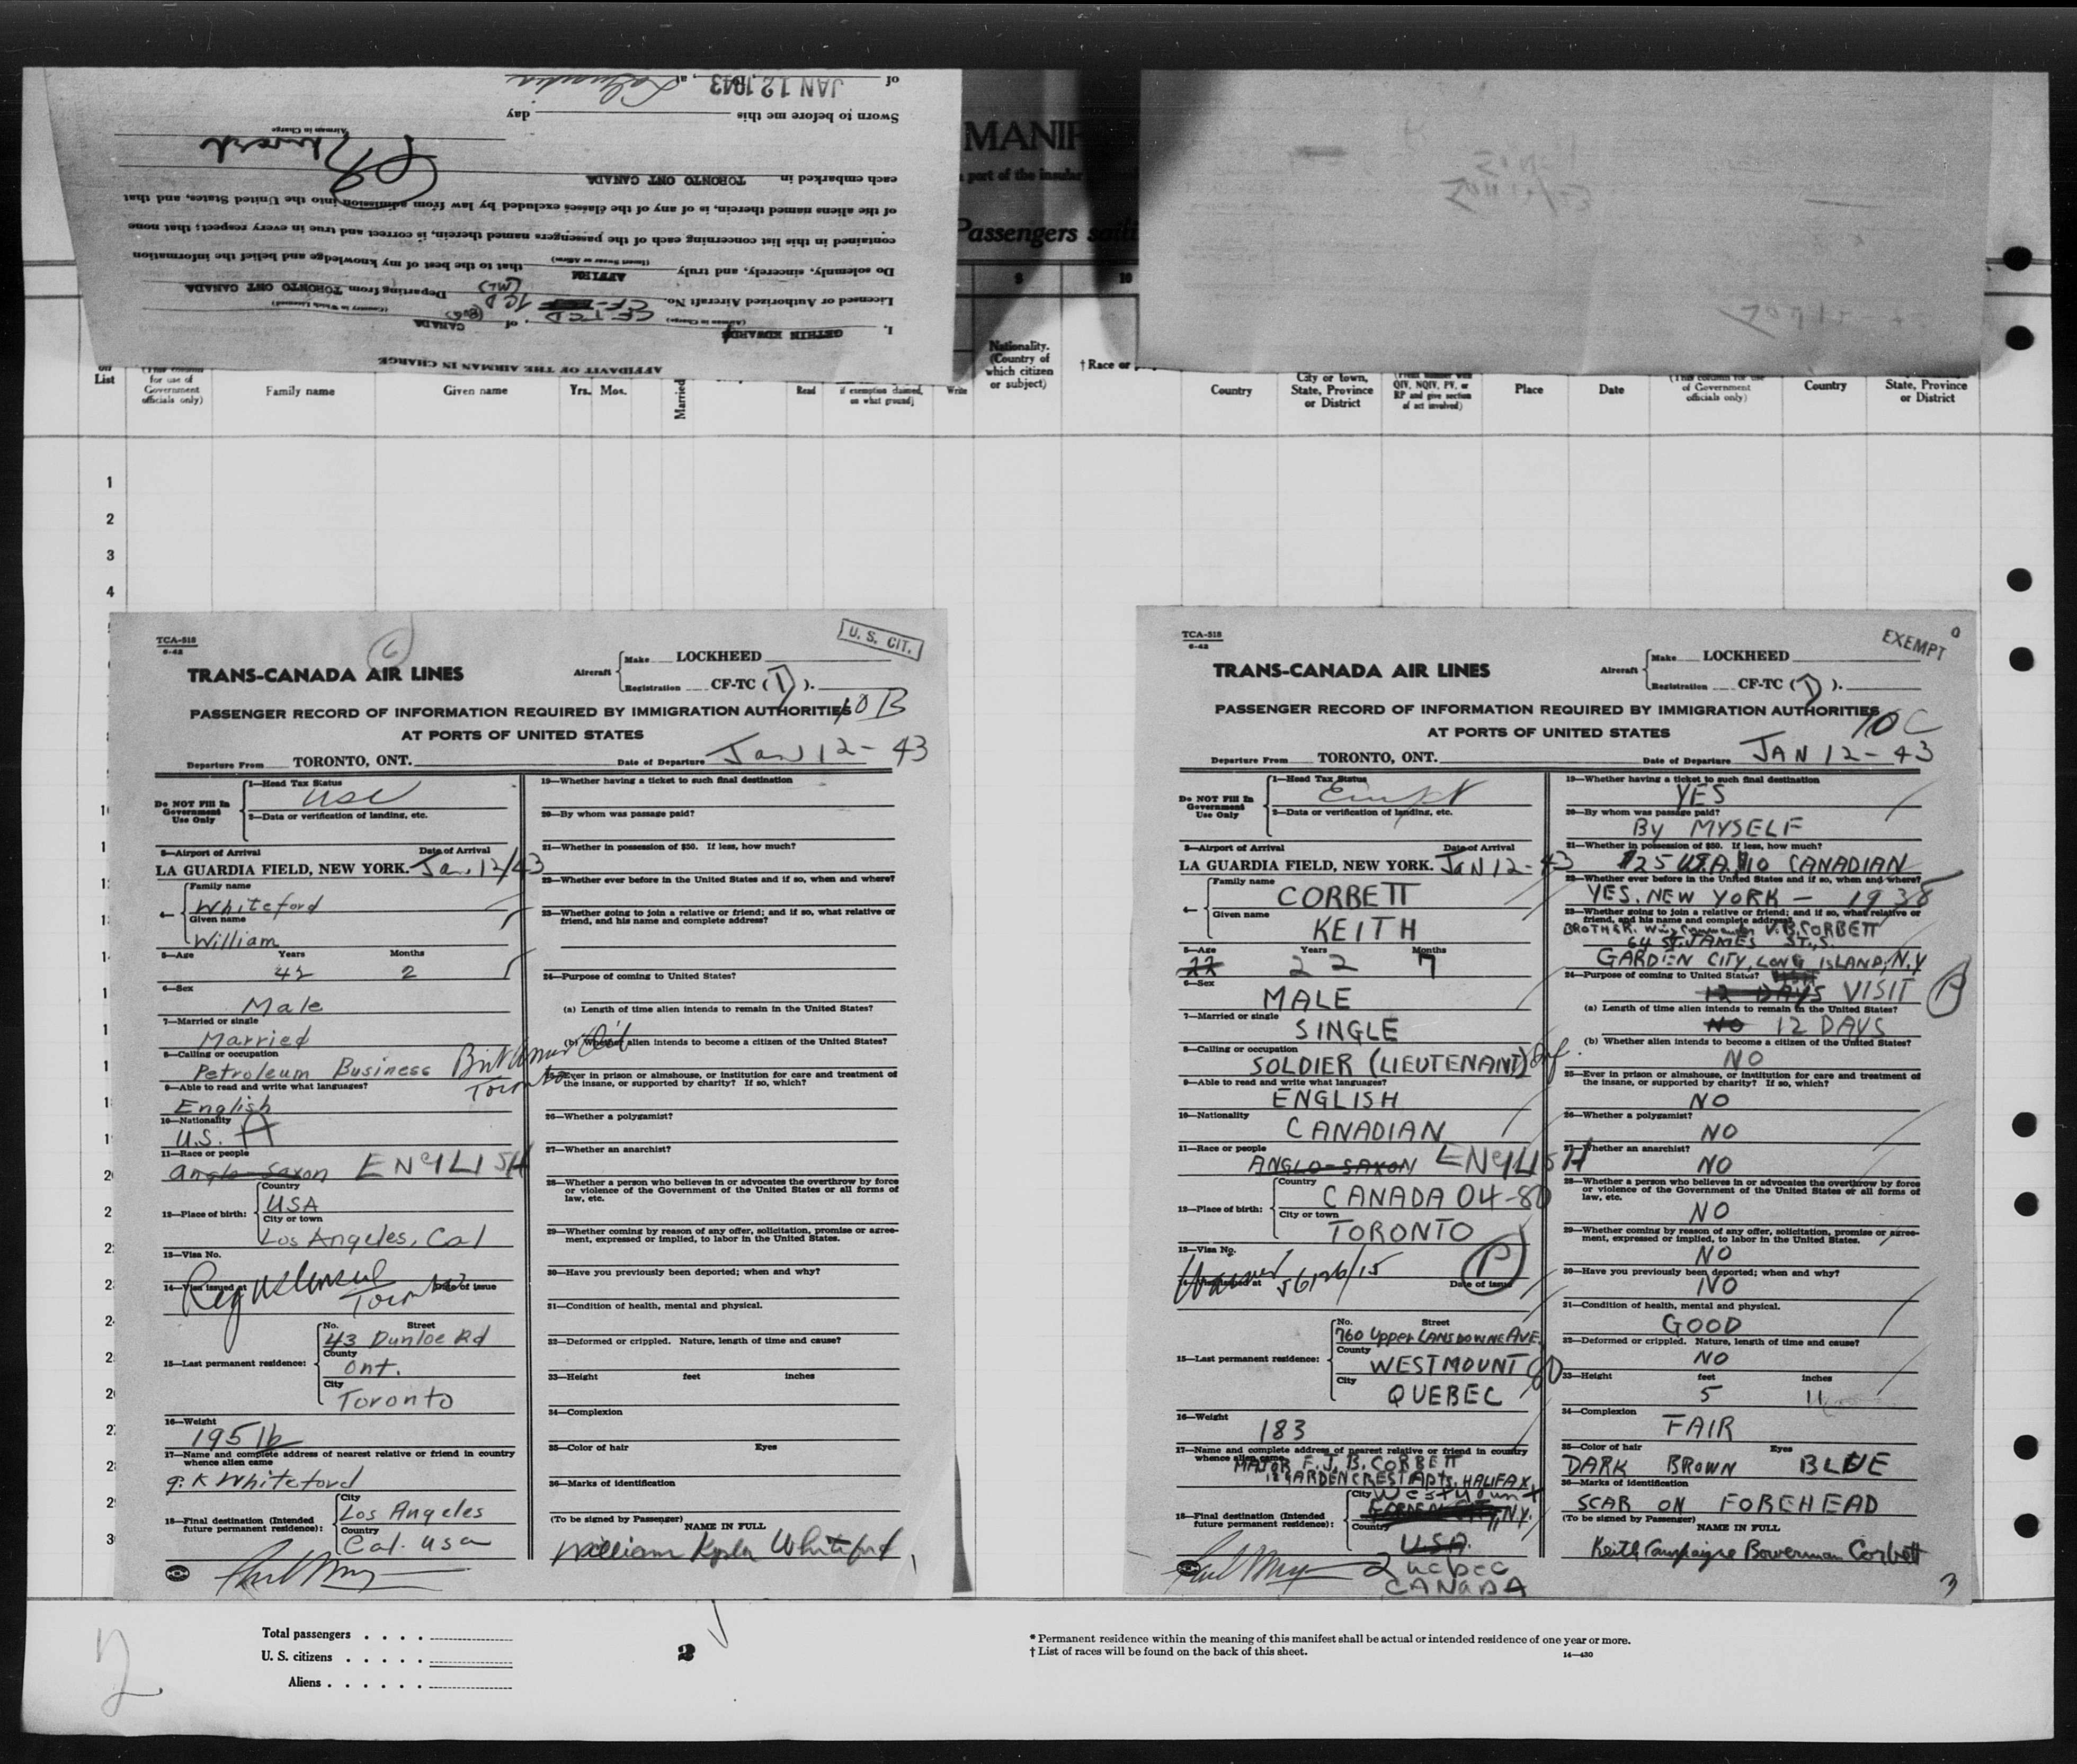 AFFIDAVIT OF THE AIRMAN IN CHARGE
I, GETHIN EDWARD of CANADA
(Airman in Charge) (Country in Which Licensed)
Licensed or Authorized Aircraft No. CF-TCD Departing from TORONTO ONT CANADA
Do solemnly, sincerely, and truly AFFIRM that to the best of my knowledge and belief the information
(Insert Swear or Affirm)
contained in this list concerning each of the passengers named therein, is correct and true in every respect; that none
of the aliens named therein, is of any of the classes excluded by law from admission into the United States, and that
each embarked in TORONTO ONT CANADA
Airman in Charge
Sworn to before me this day
of JAN 12 1943, at LaGuardia
MANIF
a port of the insular
Passengers saili
9 10
Nationality.
(Country of
which citizen
or subject)
† Race or
List
for use of
Government
officials only)
Family name Given name Yrs. Mos. Married Read if exemption claimed, on what ground] Write
Country
City or town,
State, Province
or District
QIV, NQIV, PV, or
RP and give section
of act involved)
Place Date
of Government
officials only)
Country
State, Province
or District
1
2
3
4
TCA-518
6-42
6
U. S. CIT.
TRANS-CANADA AIR LINES
Aircraft Make LOCKHEED
Registration CF-TC (D).
PASSENGER RECORD OF INFORMATION REQUIRED BY IMMIGRATION AUTHORITIES 10B
AT PORTS OF UNITED STATES
Departure From TORONTO, ONT. Date of Departure Jan 12-43
Do NOT Fill In
Government
Use Only
1—Head Tax Status
USC
2—Data or verification of landing, etc.
3—Airport of Arrival Date of Arrival
LA GUARDIA FIELD, NEW YORK. Jan. 12/43
4— Family name
Whiteford
Given name
William
5—Age Years Months
42 2
6—Sex
Male
7—Married or single
Married
8—Calling or occupation
Petroleum Business Brit Amer Oil
Toronto
9—Able to read and write what languages?
English
10—Nationality
U.S. A
11—Race or people
Anglo-Saxon ENGLISH
12—Place of birth: Country
USA
City or town
Los Angeles, Cal
13—Visa No.
14—Visa issued at Date of issue
Reg US Consul
Toronto
15—Last permanent residence: No. Street
43 Dunloe Rd
County
Ont.
City
Toronto
16—Weight
195 lb
17—Name and complete address of nearest relative or friend in country
whence alien came
G. K Whiteford
18—Final destination (Intended
future permanent residence): City
Los Angeles
Country
Cal. USA
19—Whether having a ticket to such final destination
20—By whom was passage paid?
21—Whether in possession of $50. If less, how much?
22—Whether ever before in the United States and if so, when and where?
23—Whether going to join a relative or friend; and if so, what relative or
friend, and his name and complete address?
24—Purpose of coming to United States?
(a) Length of time alien intends to remain in the United States?
(b) Whether alien intends to become a citizen of the United States?
25—Ever in prison or almshouse, or institution for care and treatment of
the insane, or supported by charity? If so, which?
26—Whether a polygamist?
27—Whether an anarchist?
28—Whether a person who believes in or advocates the overthrow by force
or violence of the Government of the United States or all forms of
law, etc.
29—Whether coming by reason of any offer, solicitation, promise or agree-
ment, expressed or implied, to labor in the United States.
30—Have you previously been deported; when and why?
31—Condition of health, mental and physical.
32—Deformed or crippled. Nature, length of time and cause?
33—Height feet inches
34—Complexion
35—Color of hair Eyes
36—Marks of identification
(To be signed by Passenger)
NAME IN FULL
William Whiteford
TCA-518
6-42
EXEMPT
TRANS-CANADA AIR LINES
Aircraft Make LOCKHEED
Registration CF-TC (D).
PASSENGER RECORD OF INFORMATION REQUIRED BY IMMIGRATION AUTHORITIES
10C
AT PORTS OF UNITED STATES
Departure From TORONTO, ONT. Date of Departure JAN 12-43
Do NOT Fill In
Government
Use Only
1—Head Tax Status
Exempt
2—Data or verification of landing, etc.
3—Airport of Arrival Date of Arrival
LA GUARDIA FIELD, NEW YORK. JAN 12-43
4— Family name
CORBETT
Given name
KEITH
5—Age Years Months
22 22 7
6—Sex
MALE
7—Married or single
SINGLE
8—Calling or occupation
SOLDIER (LIEUTENANT)
9—Able to read and write what languages?
ENGLISH
10—Nationality
CANADIAN
11—Race or people
ANGLO-SAXON ENGLISH
12—Place of birth: Country
CANADA 04-80
City or town
TORONTO
13—Visa No.
P
56126/15
Date of issue
15—Last permanent residence: No. Street
760 Upper LANSDOWNE AVE.
County
WESTMOUNT 80
City
QUEBEC
16—Weight
183
17—Name and complete address of nearest relative or friend in country
whence alien came
MAJOR F. J. B. CORBETT
12 GARDENCREST Apts, HALIFAX
18—Final destination (Intended
future permanent residence): City
Westmount
N.Y.
Country
U.S.A.
Quebec
CANADA
19—Whether having a ticket to such final destination
YES
20—By whom was passage paid?
By MYSELF
21—Whether in possession of $50. If less, how much?
$25 U.S.A. $10 CANADIAN
22—Whether ever before in the United States and if so, when and where?
YES. NEW YORK — 1938
23—Whether going to join a relative or friend; and if so, what relative or
friend, and his name and complete address?
BROTHER. Wing Commander V. B. CORBETT
64 ST. JAMES ST., S.
GARDEN CITY, LONG ISLAND, N.Y
24—Purpose of coming to United States?
12 DAYS VISIT
(a) Length of time alien intends to remain in the United States?
NO 12 DAYS
(b) Whether alien intends to become a citizen of the United States?
NO
25—Ever in prison or almshouse, or institution for care and treatment of
the insane, or supported by charity? If so, which?
NO
26—Whether a polygamist?
NO
27—Whether an anarchist?
NO
28—Whether a person who believes in or advocates the overthrow by force
or violence of the Government of the United States or all forms of
law, etc.
NO
29—Whether coming by reason of any offer, solicitation, promise or agree-
ment, expressed or implied, to labor in the United States.
NO
30—Have you previously been deported; when and why?
NO
31—Condition of health, mental and physical.
GOOD
32—Deformed or crippled. Nature, length of time and cause?
NO
33—Height feet inches
5 11
34—Complexion
FAIR
35—Color of hair Eyes
DARK BROWN BLUE
36—Marks of identification
SCAR ON FOREHEAD
(To be signed by Passenger)
NAME IN FULL
Keith Campaigne Bowerman Corbett
3
Total passengers . . . .
U. S. citizens . . . . .
Aliens . . . . . .
2
2
* Permanent residence within the meaning of this manifest shall be actual or intended residence of one year or more.
† List of races will be found on the back of this sheet.
14—430